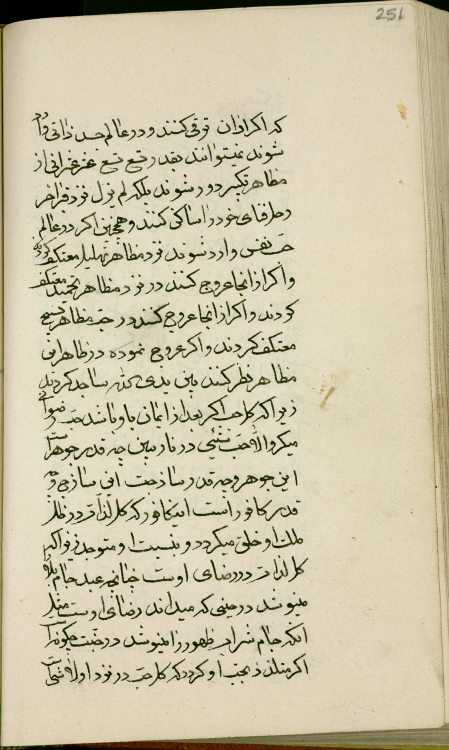 251
که اگر از آن ترقی کنند و در عالم حب ذاتی وارد
شوند نمیتوانند بقدر تسع تسع عشر عشر آنی از
مظاهر تکبیر دور شوند بلکه لم یزل نزد فراخر
رحل فنای خود را ساکن کنند و همچنین اگر در عالم
حب نفس وارد شوند نزد مظاهر تهلیل معتکف گردند
و اگر از آنجا عروج کنند در نزد مظاهر تحمید معتکف
گردند و اگر از آنجا عروج کنند در حب مظاهر تسبیح
معتکف گردند و اگر عروج نموده در ظاهر این
مظاهر نظر کنند بین یدی الله ساجد گردند
زیرا که کل حب اگر بعد از ایمان باو باشد حب رضوان
میگردد والا حب شیئی در نار ببین چه قدر جوهر است
این جوهر و چه قدر ساذج است این ساذج و چه
قدر کافور است این کافور که کل لذات در ظل
ملک او خلق میگردد و نیست او متوجد زیرا که
کل لذات در رضای اوست چنانچه عبد جام بلا
مینوشد در حینی که میداند رضای اوست مثل
آنکه جام شراب ظهور را مینوشد در جنت چگونه است
اگر متلذذ بحب او گردد که کل حب در نزد او لا شیئ است